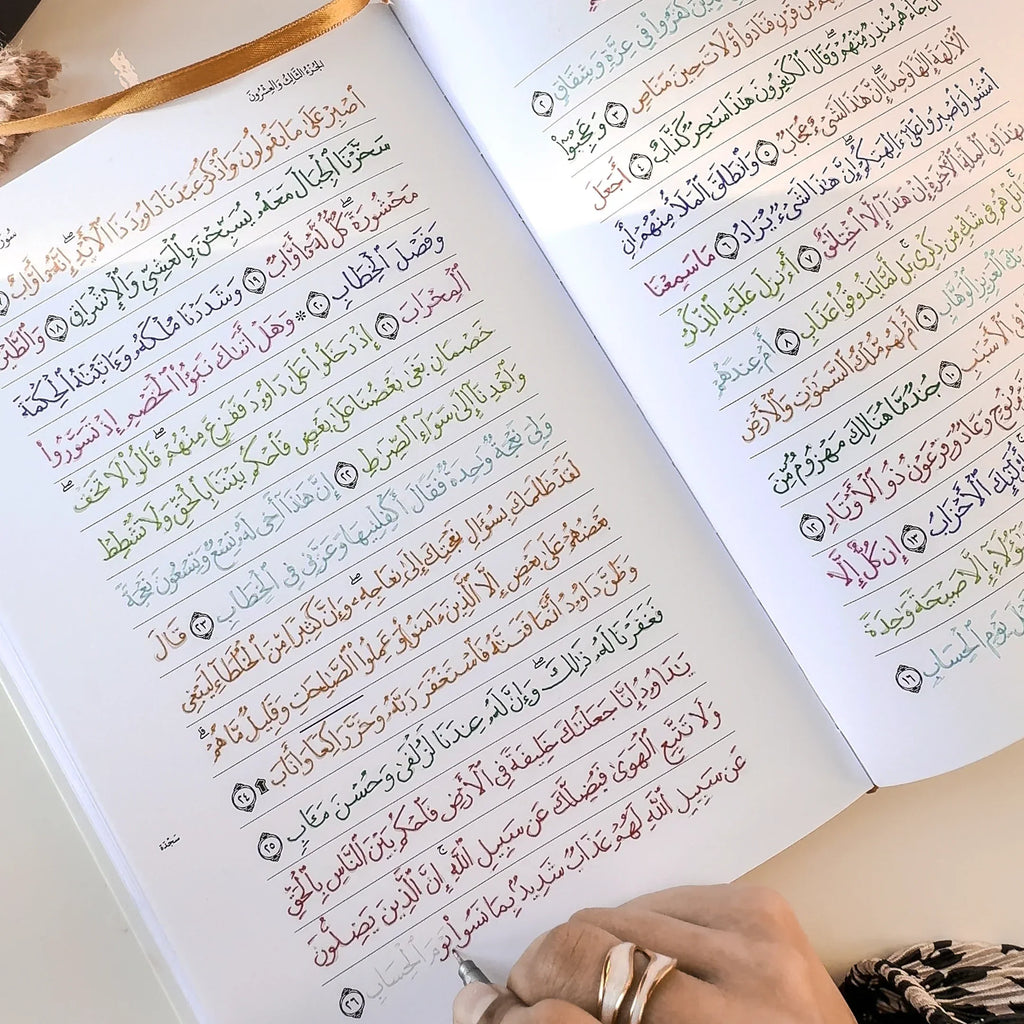 كَفَرُوا۟ فِى عِزَّةٍۢ وَشِقَاقٍۢ ٢
مِن قَرْنٍۢ فَنَادَوا۟ وَّلَاتَ حِينَ مَنَاصٍۢ ٣ وَعَجِبُوٓا۟
أَن جَآءَهُم مُّنذِرٌۭ مِّنْهُمْ ۖ وَقَالَ ٱلْكَٰفِرُونَ هَٰذَا سَٰحِرٌۭ كَذَّابٌ ٤ أَجَعَلَ
ٱلْءَالِهَةَ إِلَٰهًۭا وَٰحِدًا ۖ إِنَّ هَٰذَا لَشَىْءٌ عُجَابٌۭ ٥ وَٱنطَلَقَ ٱلْمَلَأُ مِنْهُمْ أَنِ
ٱمْشُوا۟ وَٱصْبِرُوا۟ عَلَىٰٓ ءَالِهَتِكُمْ ۖ إِنَّ هَٰذَا لَشَىْءٌۭ يُرَادُ ٦ مَا سَمِعْنَا
بِهَٰذَا فِى ٱلْمِلَّةِ ٱلْءَاخِرَةِ إِنْ هَٰذَآ إِلَّا ٱخْتِلَٰقٌ ٧ أَءُنزِلَ عَلَيْهِ ٱلذِّكْرُ
هُمْ فِى شَكٍّۢ مِّن ذِكْرِى ۖ بَل لَّمَّا يَذُوقُوا۟ عَذَابِ ٨ أَمْ عِندَهُمْ
ٱلْعَزِيزِ ٱلْوَهَّابِ ٩ أَمْ لَهُم مُّلْكُ ٱلسَّمَٰوَٰتِ وَٱلْأَرْضِ
فِى ٱلْأَسْبَٰبِ ١٠ جُندٌۭ مَّا هُنَالِكَ مَهْزُومٌۭ مِّنَ
نُوحٍۢ وَعَادٌۭ وَفِرْعَوْنُ ذُو ٱلْأَوْتَادِ ١٢
أُو۟لَٰٓئِكَ ٱلْأَحْزَابُ ١٣ إِن كُلٌّ إِلَّا
هَٰٓؤُلَآءِ إِلَّا صَيْحَةًۭ وَٰحِدَةًۭ
يَوْمِ ٱلْحِسَابِ ١٦
الجزء الثالث والعشرون
ٱصْبِرْ عَلَىٰ مَا يَقُولُونَ وَٱذْكُرْ عَبْدَنَا دَاوُۥدَ ذَا ٱلْأَيْدِ ۖ إِنَّهُۥٓ أَوَّابٌ
سَخَّرْنَا ٱلْجِبَالَ مَعَهُۥ يُسَبِّحْنَ بِٱلْعَشِىِّ وَٱلْإِشْرَاقِ ١٨ وَٱلطَّيْرَ
مَحْشُورَةًۭ ۖ كُلٌّۭ لَّهُۥٓ أَوَّابٌۭ ١٩ وَشَدَدْنَا مُلْكَهُۥ وَءَاتَيْنَٰهُ ٱلْحِكْمَةَ
وَفَصْلَ ٱلْخِطَابِ ٢٠ ۞ وَهَلْ أَتَىٰكَ نَبَؤُا۟ ٱلْخَصْمِ إِذْ تَسَوَّرُوا۟
ٱلْمِحْرَابَ ٢١ إِذْ دَخَلُوا۟ عَلَىٰ دَاوُۥدَ فَفَزِعَ مِنْهُمْ ۖ قَالُوا۟ لَا تَخَفْ ۖ
خَصْمَانِ بَغَىٰ بَعْضُنَا عَلَىٰ بَعْضٍۢ فَٱحْكُم بَيْنَنَا بِٱلْحَقِّ وَلَا تُشْطِطْ
وَٱهْدِنَآ إِلَىٰ سَوَآءِ ٱلصِّرَٰطِ ٢٢ إِنَّ هَٰذَآ أَخِى لَهُۥ تِسْعٌۭ وَتِسْعُونَ نَعْجَةًۭ
وَلِىَ نَعْجَةٌۭ وَٰحِدَةٌۭ فَقَالَ أَكْفِلْنِيهَا وَعَزَّنِى فِى ٱلْخِطَابِ ٢٣ قَالَ
لَقَدْ ظَلَمَكَ بِسُؤَالِ نَعْجَتِكَ إِلَىٰ نِعَاجِهِۦ ۖ وَإِنَّ كَثِيرًۭا مِّنَ ٱلْخُلَطَآءِ لَيَبْغِى
بَعْضُهُمْ عَلَىٰ بَعْضٍ إِلَّا ٱلَّذِينَ ءَامَنُوا۟ وَعَمِلُوا۟ ٱلصَّٰلِحَٰتِ وَقَلِيلٌۭ مَّا هُمْ ۗ
وَظَنَّ دَاوُۥدُ أَنَّمَا فَتَنَّٰهُ فَٱسْتَغْفَرَ رَبَّهُۥ وَخَرَّ رَاكِعًۭا وَأَنَابَ ۩ ٢٤
فَغَفَرْنَا لَهُۥ ذَٰلِكَ ۖ وَإِنَّ لَهُۥ عِندَنَا لَزُلْفَىٰ وَحُسْنَ مَـَٔابٍۢ ٢٥
يَٰدَاوُۥدُ إِنَّا جَعَلْنَٰكَ خَلِيفَةًۭ فِى ٱلْأَرْضِ فَٱحْكُم بَيْنَ ٱلنَّاسِ بِٱلْحَقِّ
وَلَا تَتَّبِعِ ٱلْهَوَىٰ فَيُضِلَّكَ عَن سَبِيلِ ٱللَّهِ ۚ إِنَّ ٱلَّذِينَ يَضِلُّونَ
عَن سَبِيلِ ٱللَّهِ لَهُمْ عَذَابٌۭ شَدِيدٌۢ بِمَا نَسُوا۟ يَوْمَ ٱلْحِسَابِ ٢٦
سجدة